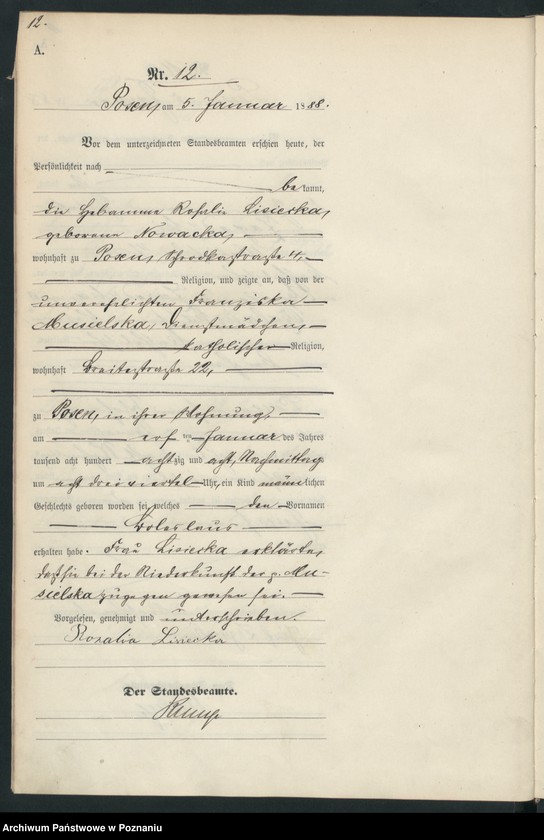 12.
A.
Nr. 12.
Posen, am 5. Januar 1888.
Vor dem unterzeichneten Standesbeamten erschien heute, der
Persönlichkeit nach
bekannt,
die Hebamme Rosalie Lisiecka,
geborene Nowacka,
wohnhaft zu Posen, Schrodkastraße 4,
Religion, und zeigte an, daß von der
unverehelichten Franziska
Musielska, Dienstmädchen,
katholischer Religion,
wohnhaft Breitestraße 22,
zu Posen, in ihrer Wohnung,
am Januar des Jahres
tausend acht hundert achtzig und acht, Nachmittags
um acht dreiviertel Uhr, ein Kind männlichen
Geschlechts geboren worden sei, welches den Vornamen
Boleslaus
erhalten habe. Frau Lisiecka erklärte,
daß sie bei der Niederkunft der p. Mu-
sielska zugegen gewesen sei.
Vorgelesen, genehmigt und unterschrieben.
Rozalia Lisiecka
Der Standesbeamte.
Archiwum Państwowe w Poznaniu